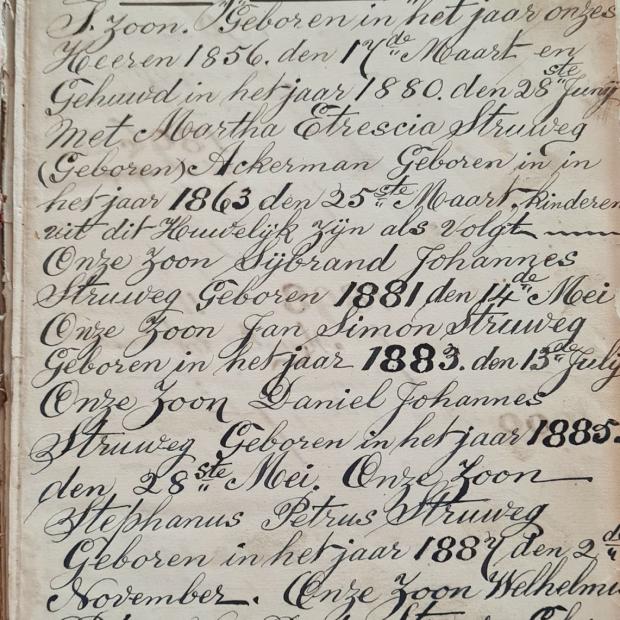 J. Zoon. Geboren in het jaar onzes
Heeren 1856. den 17de Maart en
Gehuwd in het jaar 1880. den 28ste Junij
Met Martha Etrescia Struweg
(Geboren) Ackerman Geboren in in
het jaar 1863 den 25ste Maart. kinderen
uit dit Huwelijk zijn als volgt
Onze Zoon Sijbrand Johannes
Struweg Geboren 1881 den 14de Mei
Onze Zoon Jan Simon Struweg
Geboren in het jaar 1883. den 13de Julij
Onze Zoon Daniel Johannes
Struweg Geboren in het jaar 1885.
den 28ste Mei. Onze Zoon
Stephanus Petrus Struweg
Geboren in het jaar 1887 den 2de
November. Onze Zoon Welhelmu